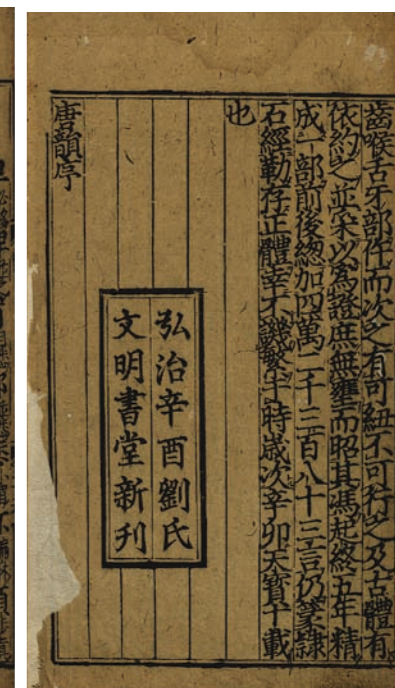 齒喉舌牙部仵而次之有可紐不可行之及古體有
依約之並采以為證庶無壅而昭其馮起終五年精
成一部前後總加四萬二千三百八十三言仍篆隸
石經勒存正體幸不譏繁于時歳次辛卯天寳十載
也
弘治辛酉劉氏
文明書堂新刊
唐韻序